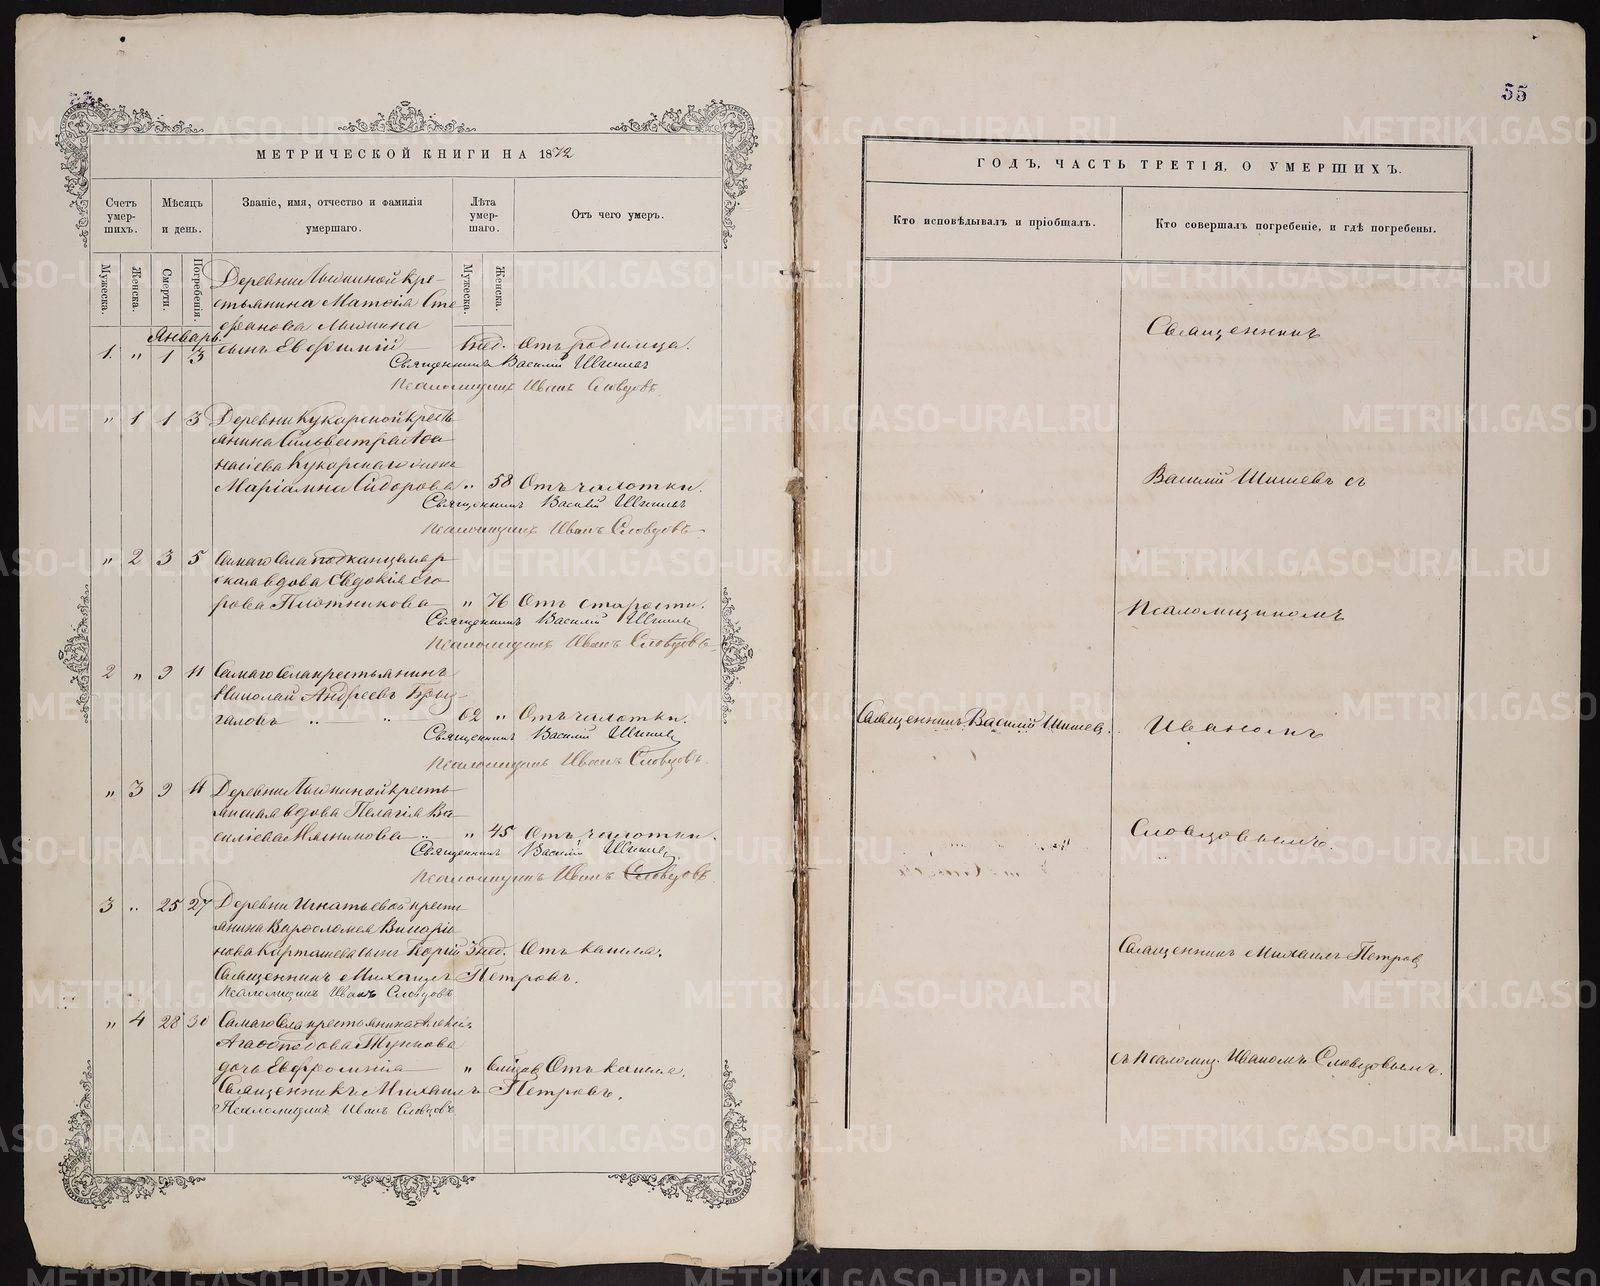 55
МЕТРИЧЕСКОЙ КНИГИ НА 1872
Счетъ умер-шихъ.
Мѣсяцъ и день.
Званіе, имя, отчество и фамилія умершаго.
Лѣта умер-шаго.
Отъ чего умеръ.
Мужеска.
Женска.
Смерти.
Погребенія.
Мужеска.
Женска.
Январь.
Деревни кре-
стьянина Матѳія Сте
фанова
1. " 1 3 сынъ Евфимій 6 нед. Отъ родимца.
Священникъ Василій Шишевъ
Псаломщикъ Иванъ Словцовъ
" 1 1 3 Деревни Кукарской крестъ
янина Сильвестра Аѳа
насіева Кукарскаго жена
Маріамна Сидорова " 58 Отъ чахотки.
Священникъ Василій Шишевъ
Псаломщикъ Иванъ Словцовъ
" 2 3 5 Самаго Села подканцеляр
ская вдова Евдокія Его
рова Плотникова " 76 Отъ старости.
Священникъ Василій Шишевъ
Псаломщикъ Иванъ Словцовъ
2 " 9 11 Самаго Села крестьянинъ
Николай Андреевъ
галовъ " " 62 " Отъ чахотки.
Священникъ Василій Шишевъ
Псаломщикъ Иванъ Словцовъ.
" 3 9 11 Деревни кресть
янская вдова Пелагія Ва
силіева " " 45 Отъ чахотки.
Священникъ Василій Шишевъ
Псаломщикъ Иванъ Словцовъ
3 " 25 27 Деревни Игнатьевой кресть
янина Варѳоломея
нова Карташева сынъ 3 нед. Отъ кашля.
Священникъ Михаилъ Петровъ.
Псаломщикъ Иванъ Словцовъ
" 4 28 30 Самаго Села крестьянина Алексія
Агаѳоподова
дочь Евфросинія " Отъ кашля.
Священникъ Михаилъ Петровъ.
Псаломщикъ Иванъ Словцовъ
ГОДЪ, ЧАСТЬ ТРЕТІЯ, О УМЕРШИХЪ.
Кто исповѣдывалъ и пріобщалъ.
Кто совершалъ погребеніе, и гдѣ погребены.
Священникъ
Василій Шишевъ съ
Псаломщикомъ
Священникъ Василій Шишевъ.
Иваномъ
Словцовымъ.
Священникъ Михаилъ Петровъ
съ Псаломщ. Иваномъ Словцовымъ.
METRIKI.GASO-URAL.RU